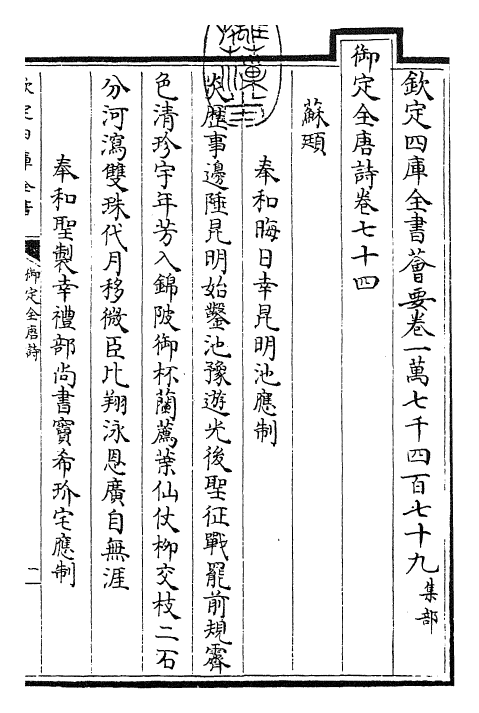 欽定四庫全書薈要卷一萬七千四百七十九集部
御定全唐詩卷七十四
蘇頲
奉和晦日幸昆明池應制
炎歷事邊陲昆明始鑿池豫遊光後聖征戰罷前規霽
色清珍宇年芳入錦陂御杯蘭薦葉仙仗柳交枝二石
分河瀉雙珠代月移微臣比翔泳恩廣自無涯
奉和聖製幸禮部尚書竇希玠宅應制
欽定四庫全書
御定全唐詩
一